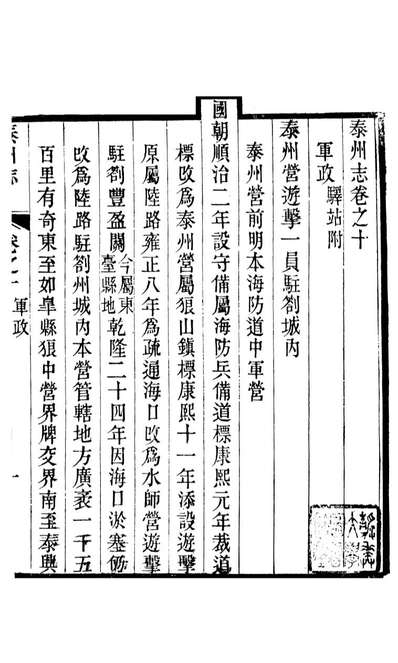 泰州志卷之十
軍政 驛站附
泰州營遊擊一員駐劄城內
泰州營前明本海防道中軍營
國朝順治二年設守備屬海防兵備道標康熙元年裁道
標改爲泰州營屬狼山鎮標康熙十一年添設遊擊
原屬陸路雍正八年爲疏通海口改爲水師營遊擊
駐劄豐盈關今屬東臺縣地乾隆二十四年因海口淤塞仍
改爲陸路駐劄州城內本營管轄地方廣袤一千五
百里有奇東至如臯縣狼中營界牌交界南至泰興
軍政
一